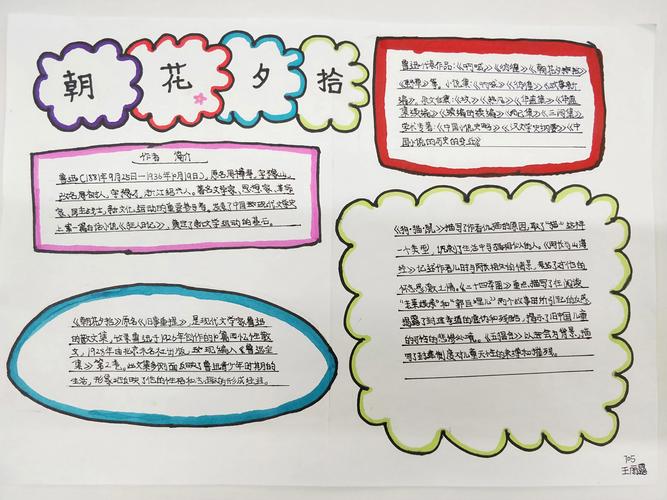 朝花夕拾
作者 简介
鲁迅(1881年9月25日—1936年10月19日),原名周樟寿,字豫山,
后改名周树人,字豫才,浙江绍兴人。著名文学家、思想家、革命
家、民主战士,新文化运动的重要参与者,
上第一篇白话小说《狂人日记》,奠定了新文学运动的基石。
《朝花夕拾》原名《旧事重提》,是现代文学家鲁迅
的散文集,收录鲁迅于1926年创作的10篇回忆性散
文,1928年由北京未名社出版,现编入《鲁迅全
集》第2卷。此文集多侧面反映了鲁迅青少年时期的
生活,形象地反映了他的性格和志趣的形成经过。
鲁迅代表作品:《呐喊》《彷徨》《朝花夕拾》
《野草》等。小说集:《呐喊》《彷徨》《故事新
编》。杂文合集:《坟》《热风》《华盖集》《华盖
集续编》《而已集》《三闲集》
学术专著:《中国小说史略》《汉文学史纲要》《中
国小说的历史的变迁》
《狗·猫·鼠》描写了作者仇猫的原因,取了“猫”这样
一个类型,《阿长与山海
经》记述作者儿时与阿长相处的情景,
怀念感激之情。《二十四孝图》重点描写了在阅读
“老莱娱亲”和“郭巨埋儿”两个故事时所引起的反感
揭露了封建孝道的虚伪和残酷,揭示了旧中国儿童
的可怜的悲惨处境。《五猖会》以赛会为背景,描
写了封建制度对儿童天性的束缚和摧残。
705